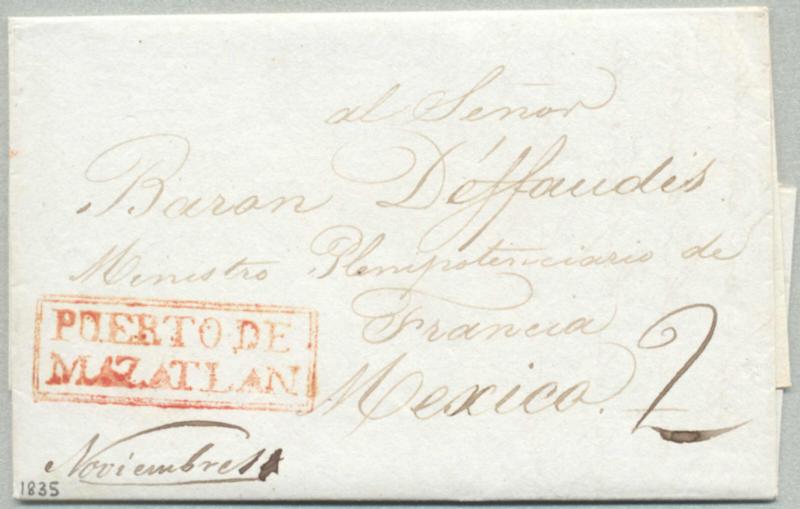 al Señor
Baron Déffaudis.
Ministro Plenipotenciario de
Francia
Mexico. 2
PUERTO DE
MAZATLAN
Noviembre
1835